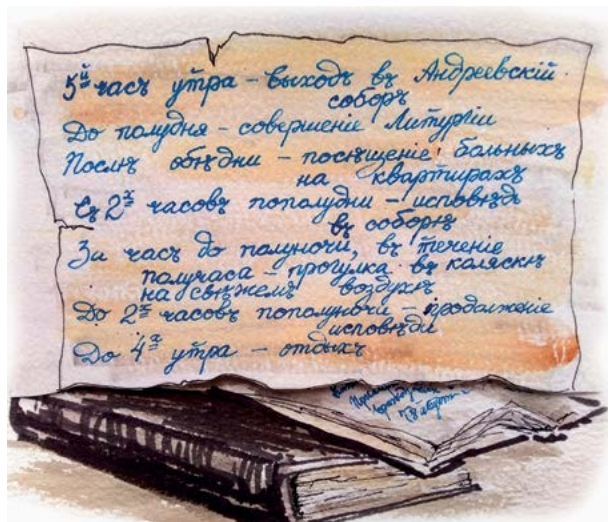 5й часъ утра – выходъ въ Андреевскій
соборъ
До полудня – совершеніе Литургіи
Послѣ обѣдни – посѣщеніе больныхъ
на квартирахъ
Съ 2х часовъ пополудни – исповѣдь
въ соборѣ
За часъ до полуночи, въ теченіе
получаса – прогулка въ коляскѣ
на свѣжемъ воздухѣ
До 2х часовъ пополуночи – продолженіе
исповѣди
До 4х утра – отдыхъ